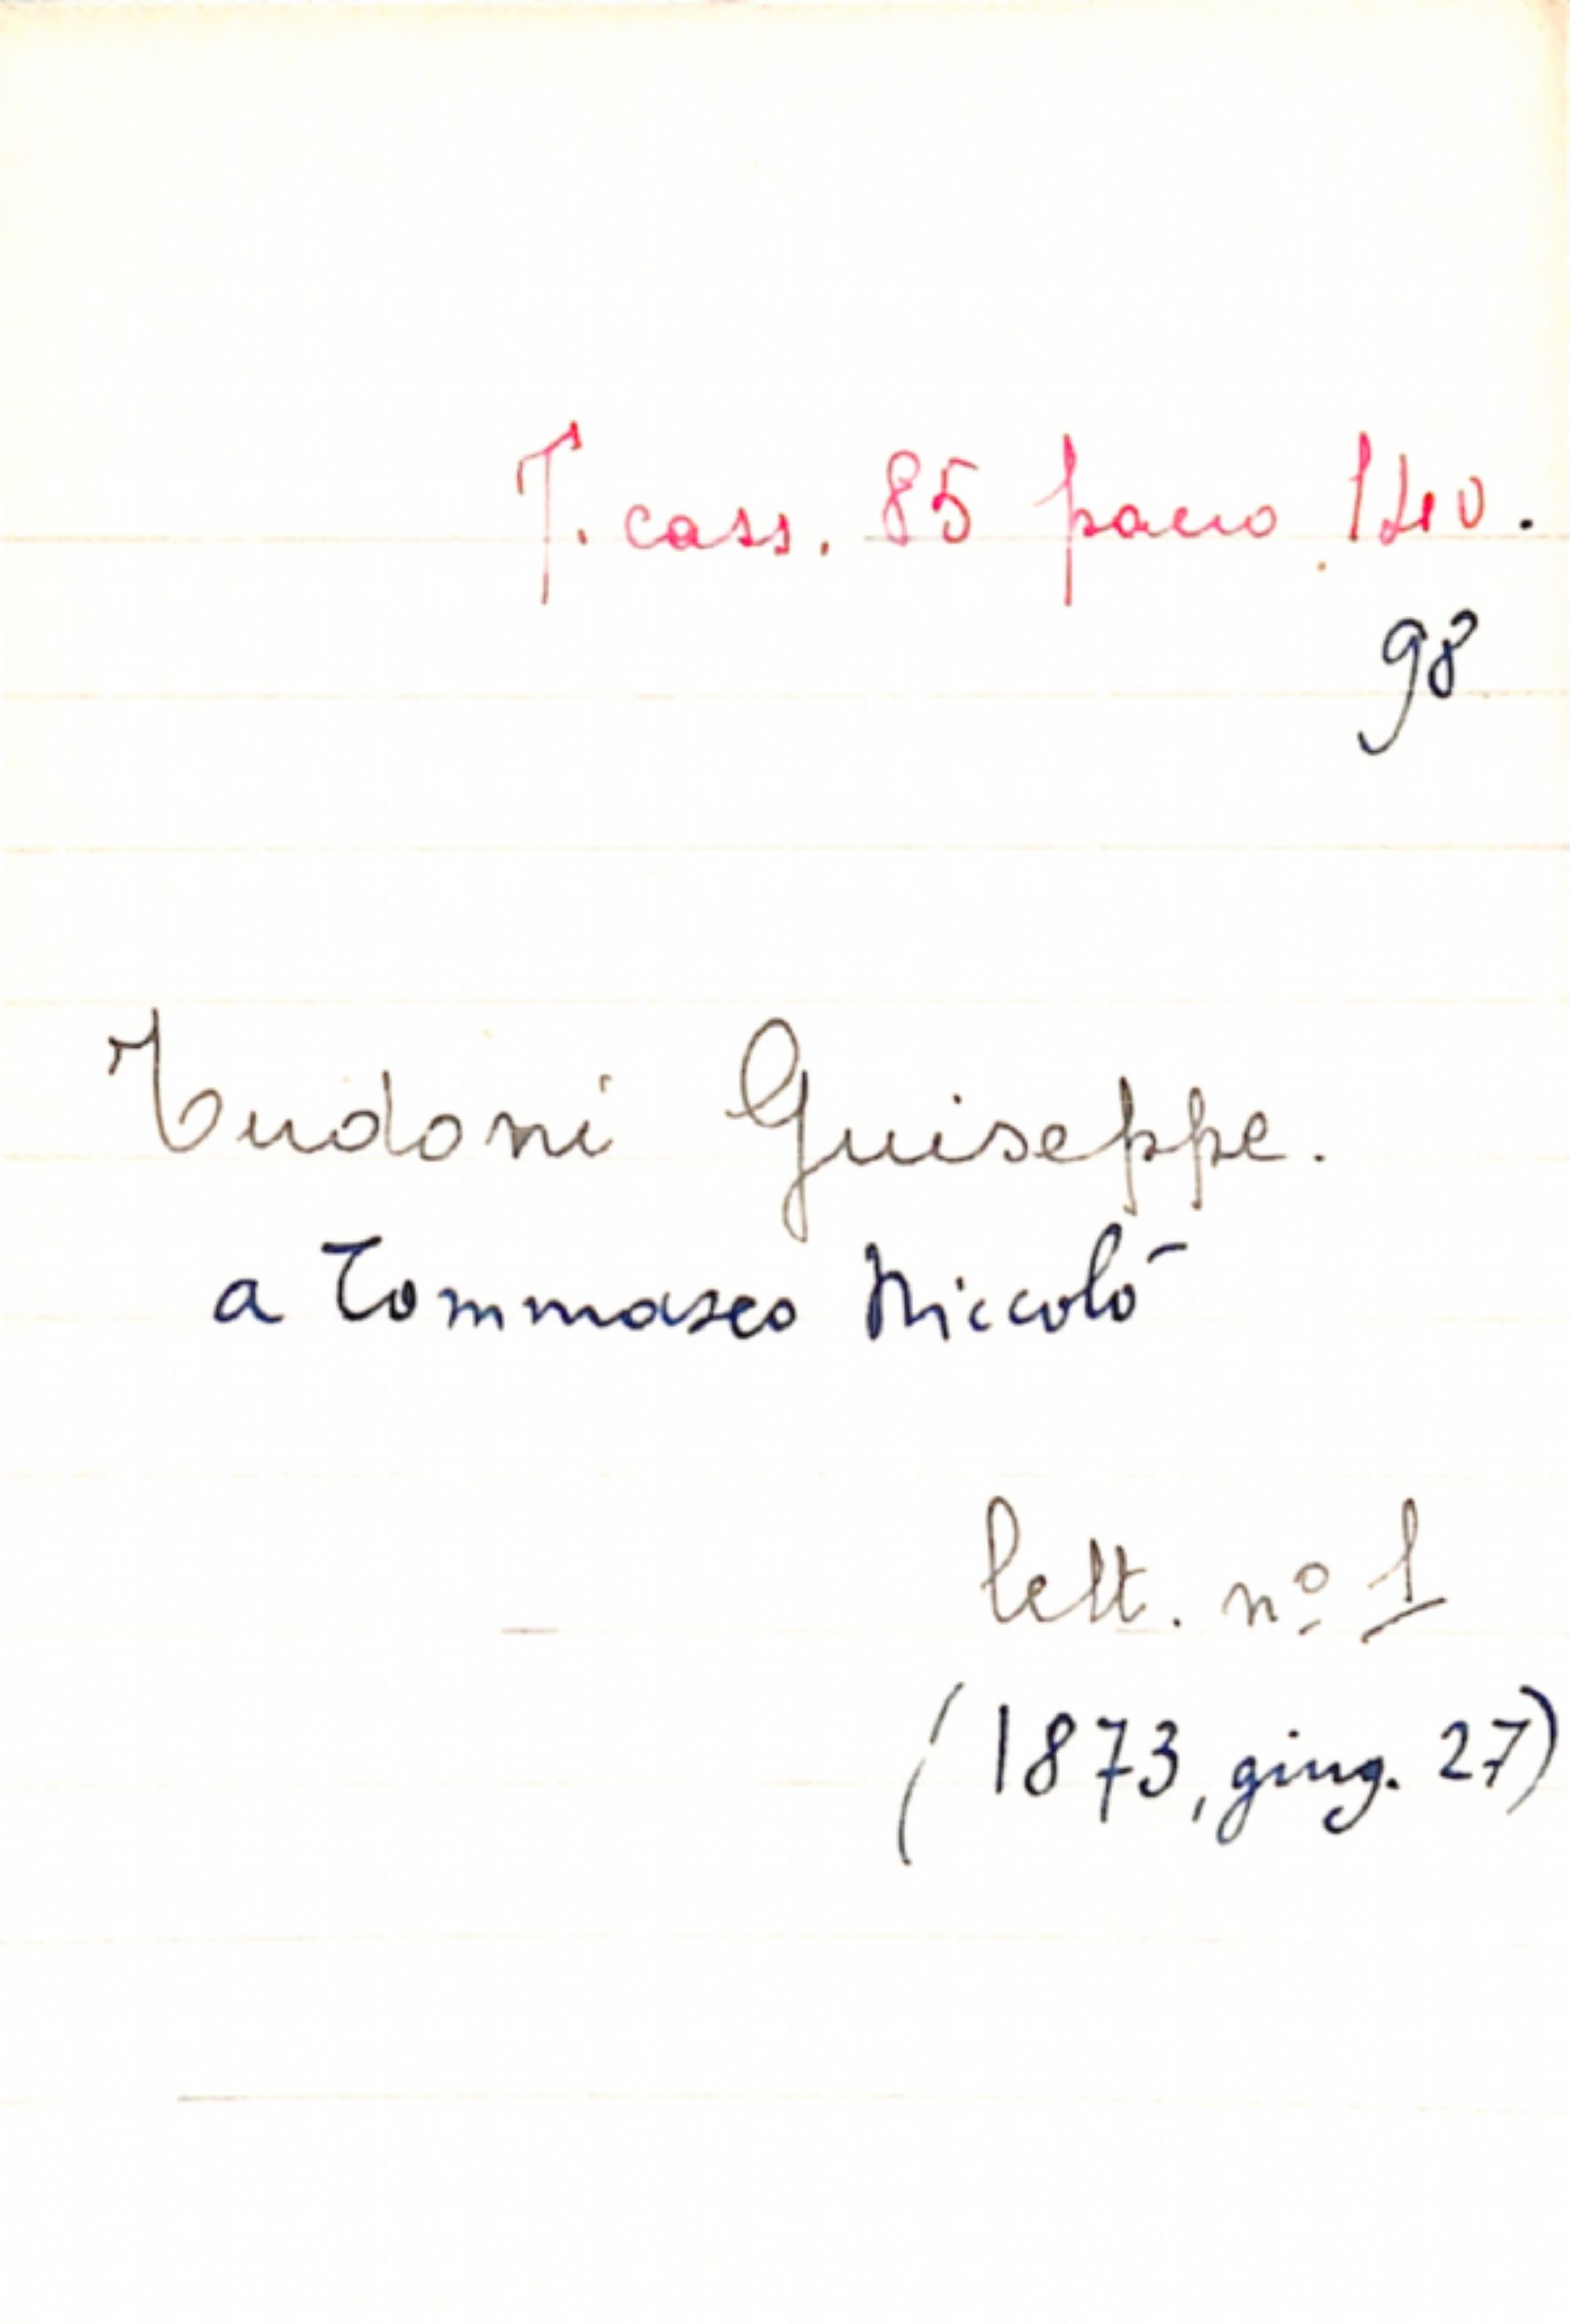 T. cass. 85 pacco 140.
98
Tudoni Giuseppe.
a Tommaseo Niccolò
lett. nº 1
(1873, giug. 27)